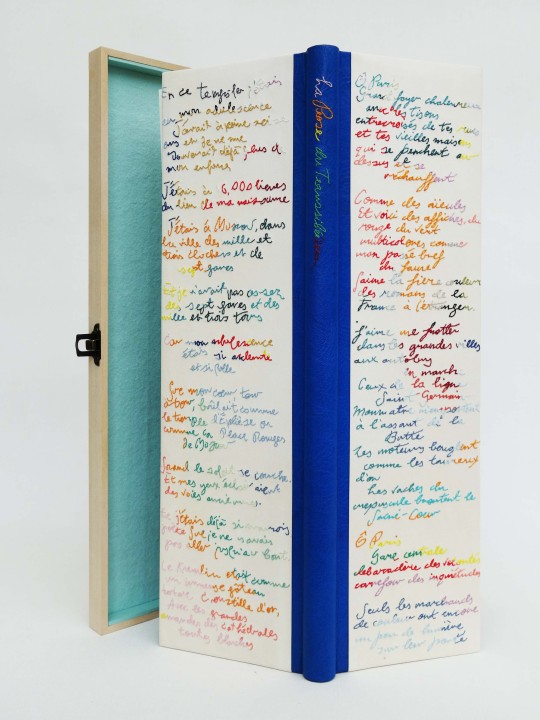 En ce temps-là j'étais
en mon adolescence
J'avais à peine sei
ans et je ne me
souvenais déjà plus de
mon enfance
J'étais à 6,000 lieues
du lieu de ma naissance
J'étais à Moscou, dans
la ville des mille et
trois clochers et de
sept gares
Et je n'avais pas assez
des sept gares et des
mille et trois tours
Car mon adolescence
était si ardente
et si folle
Que mon cœur tour
à tour, brûlait comme
le temple d'Éphèse ou
comme la Place Rouge
de Moscou
Quand le soleil se couche.
Et mes yeux éclairaient
des voies anciennes.
Et j'étais déjà si mauvais
poète que je ne savais
pas aller jusqu'au bout.
Le Kremlin était comme
un immense gâteau
tartare croustillé d'or,
Avec les grandes
amandes des cathédrales
toutes blanches
La Prose du Transsibérien
O Paris
Grand foyer chaleureux
avec les tisons
entrecroisés de tes rues
et tes vieilles maisons
qui se penchent au-
dessus et se
réchauffent
Comme des aïeules
Et voici des affiches, du
rouge du vert
multicolores comme
mon passé bref
du jaune
Jaune la fière couleur
des romans de la
France à l'étranger.
J'aime me frotter
dans les grandes villes
aux autobus
en marche
Ceux de la ligne
Saint-Germain
Montmartre m'emportent
à l'assaut de la
Butte
Les moteurs beuglent
comme les taureaux
d'or
Les vaches du
crépuscule broutent le
Sacré-Cœur
O Paris
Gare centrale
débarcadère des volontés
carrefour des inquiétudes
Seuls les marchands
de couleur ont encore
un peu de lumière
sur leur porte